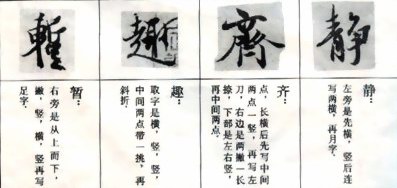 静
静：
左旁是先横，竖后连
写两横，再月字。
齊
齐：
点，长横后先写中间
两点一竖，再写左
刀，右边是两撇一长
捺，下部是左右竖，
再中间两点。
趣
趣：
取字是横，竖，竖，
中间两点带一挑，再
斜折。
暂：
右旁是从上而下，
撇，竖，横，竖再写
足字。